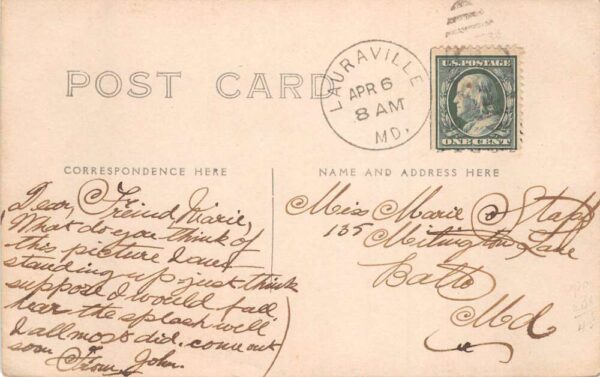 POST CARD
LAURAVILLE
APR 6
8 AM
MD.
U.S. POSTAGE
ONE CENT
CORRESPONDENCE HERE
NAME AND ADDRESS HERE
Dear, Freind, Marie,
What do you think of
this picture I am
standing up just think
suppose I would fall,
hear the splash well
I all most did. come out
soon From, John.
Miss Marie Stapf
135 Lane
Balto
Md